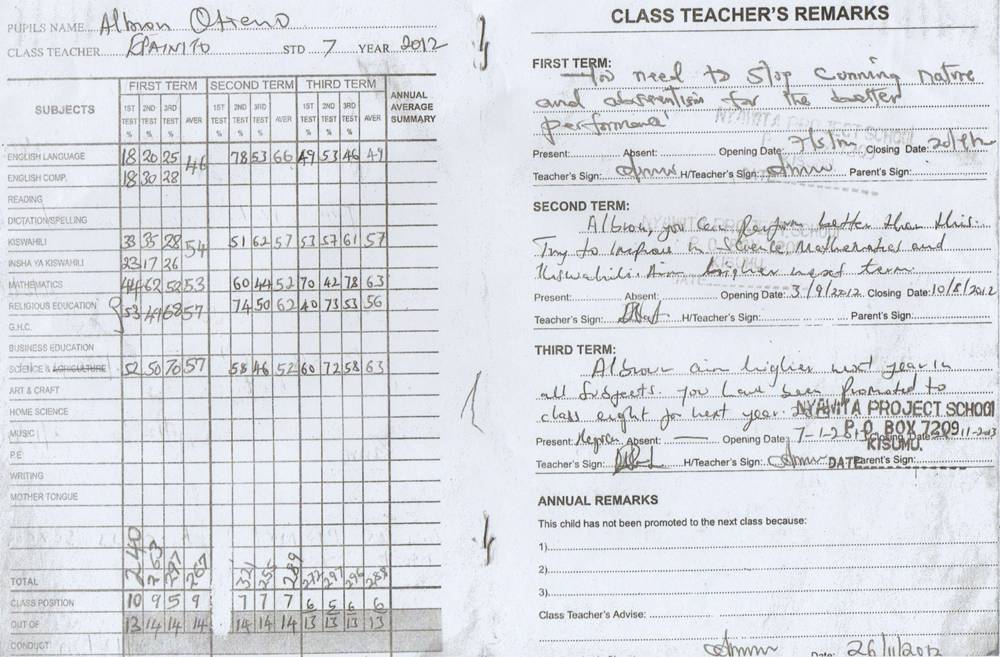 PUPILS NAME Albron Otieno
CLASS TEACHER STD 7 YEAR 2012
SUBJECTS
FIRST TERM SECOND TERM THIRD TERM
ANNUAL AVERAGE SUMMARY
1ST TEST % 2ND TEST % 3RD TEST % AVER 1ST TEST % 2ND TEST % 3RD TEST % AVER 1ST TEST % 2ND TEST % 3RD TEST % AVER
ENGLISH LANGUAGE 18 20 25 46 78 53 66 49 53 46 49
ENGLISH COMP. 18 30 28
READING
DICTATION/SPELLING
KISWAHILI 33 35 28 54 51 62 57 53 57 61 57
INSHA YA KISWAHILI 23 17 26
MATHEMATICS 44 62 52 53 60 44 52 70 42 78 63
RELIGIOUS EDUCATION 53 49 68 57 74 50 62 40 73 53 56
G.H.C.
BUSINESS EDUCATION
SCIENCE & AGRICULTURE 52 50 70 57 58 46 52 60 72 58 63
ART & CRAFT
HOME SCIENCE
MUSIC
P.E
WRITING
MOTHER TONGUE
TOTAL 240 263 297 267 321 255 289 272 297 296 288
CLASS POSITION 10 9 5 9 7 7 7 6 5 6 6
OUT OF 13 14 14 14 14 14 14 13 13 13 13
CONDUCT
CLASS TEACHER'S REMARKS
FIRST TERM:
You need to stop cunning nature
and absentism for the better
performance
NYAWITA PROJECT SCHOOL
Present: Absent: Opening Date: Closing Date:
Teacher's Sign: H/Teacher's Sign: Parent's Sign:
SECOND TERM:
Albron, you can perform better than this.
Try to improve in Science, Mathematics and
Kiswahili. Aim higher next term.
KISUMU
Present: Absent: Opening Date: 3/9/2012 Closing Date: 10/8/2012
Teacher's Sign: H/Teacher's Sign: Parent's Sign:
THIRD TERM:
Albron aim higher next year in
all subjects. You have been promoted to
class eight for next year.
NYAWITA PROJECT SCHOOL
P.O. BOX 7209
KISUMU.
DATE
Present: Absent: Opening Date: Closing Date:
Teacher's Sign: H/Teacher's Sign: Parent's Sign:
ANNUAL REMARKS
This child has not been promoted to the next class because:
1)
2)
3)
Class Teacher's Advise:
Date: 26/11/2012